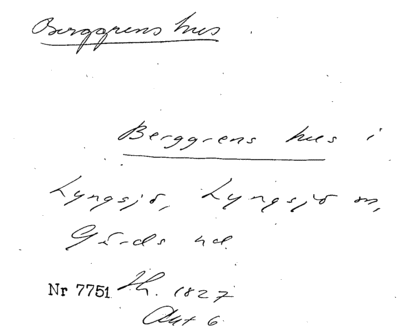 Berggrens hus
Berggrens hus i
Lyngsjö, Lyngsjö sn,
Gärds hd.
Nr 7751 Th. 1827
Akt 6